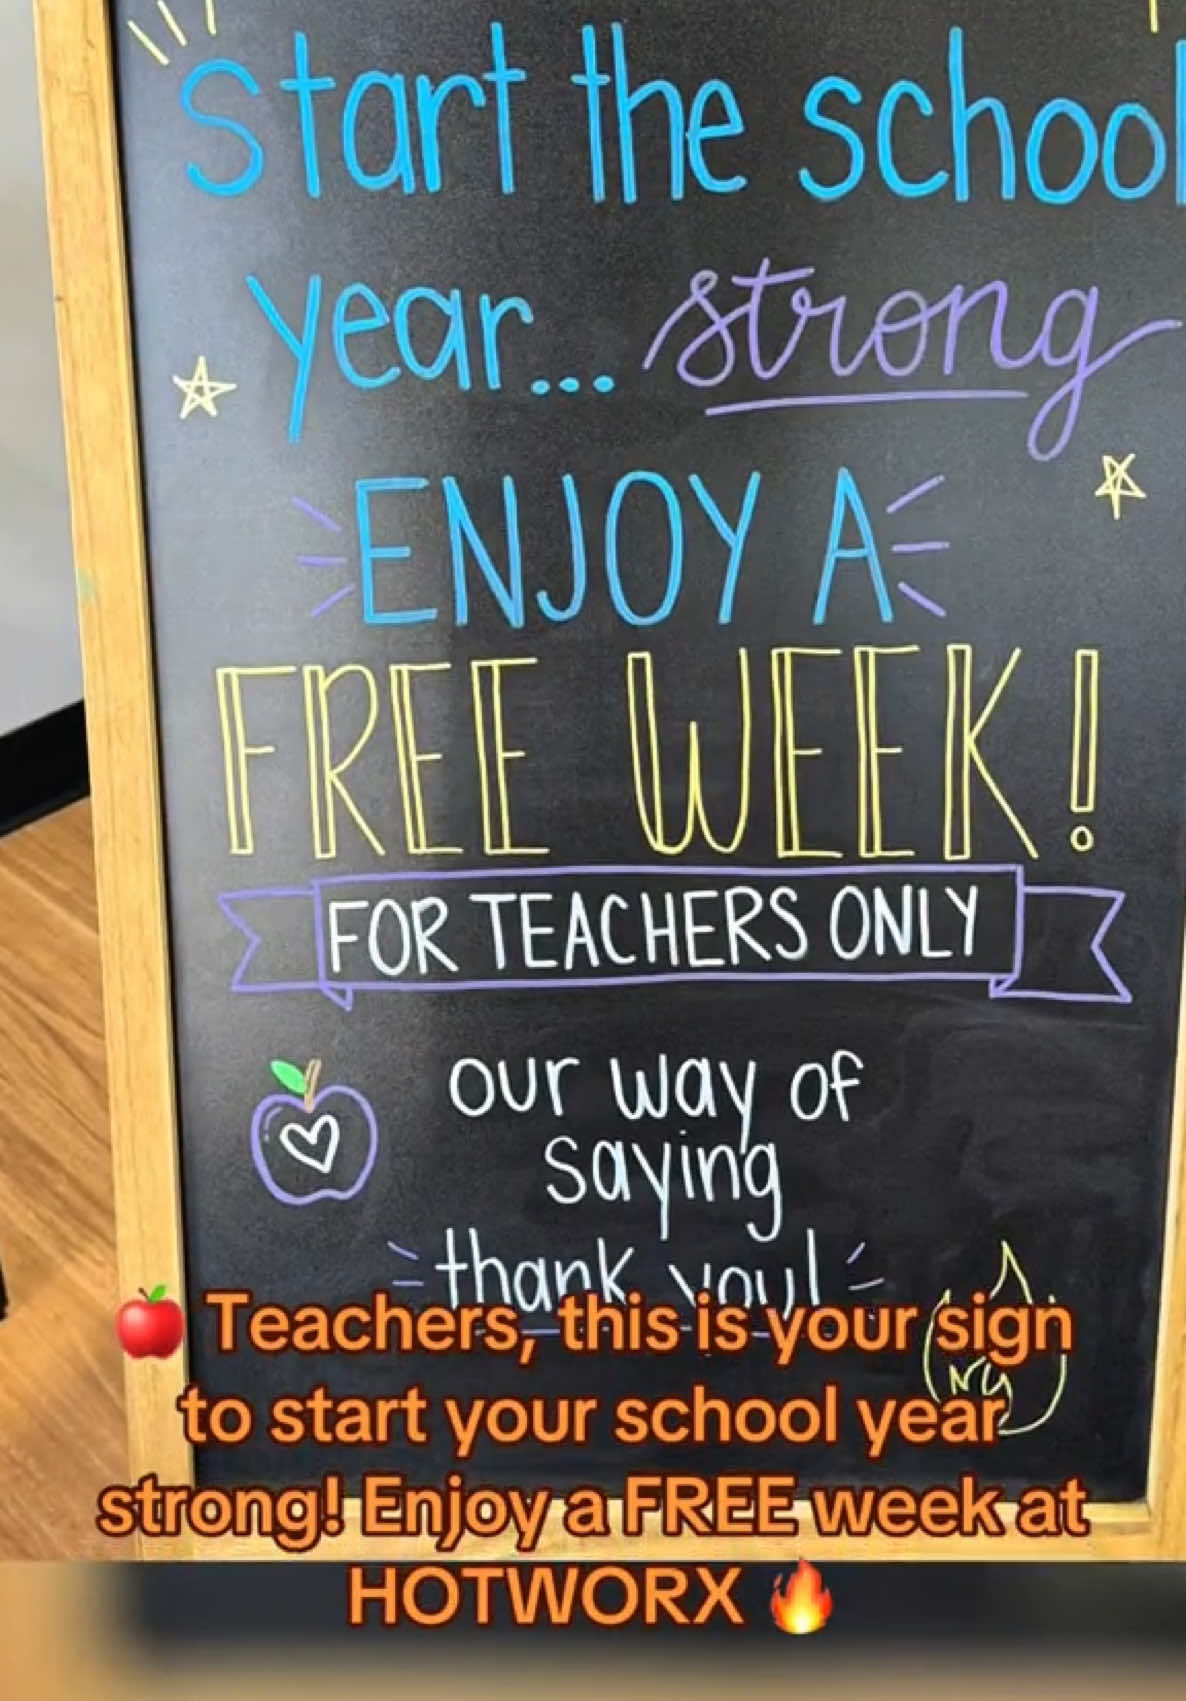 Start the school
year... strong
ENJOY A
FREE WEEK!
FOR TEACHERS ONLY
our way of
saying
thank you!
🍎 Teachers, this is your sign
to start your school year
strong! Enjoy a FREE week at
HOTWORX 🔥